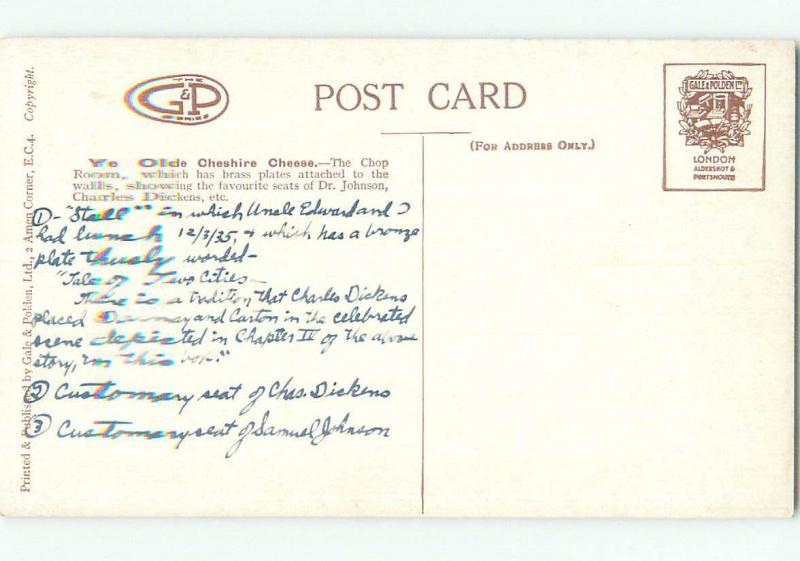 THE
G&P
SERIES
POST CARD
(FOR ADDRESS ONLY.)
GALE & POLDEN LTD
LONDON
ALDERSHOT &
PORTSMOUTH
Printed & Published by Gale & Polden, Ltd., 2 Amen Corner, E.C.4. Copyright.
Ye Olde Cheshire Cheese.—The Chop
Room, which has brass plates attached to the
walls, showing the favourite seats of Dr. Johnson,
Charles Dickens, etc.
① - "Stall" in which Uncle Edward and I
had lunch 12/3/35, & which has a bronze
plate thusly worded-
"Tale of Two Cities-
There is a tradition that Charles Dickens
placed Darnay and Carton in the celebrated
scene depicted in Chapter IV of the above
story, "in this box."
② Customary seat of Chas. Dickens
③ Customary seat of Samuel Johnson